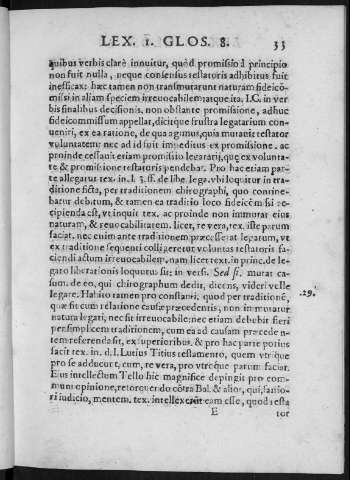 LEX. 1. GLOS. 8. 33
quibus verbis clarè innuitur, quòd promissio à principio
non fuit nulla, neque consensus testatoris adhibitus fuit
inefficax: hæc tamen non transmutarunt naturam fideicō-
missi in aliam speciem irreuocabilem: atque ita. I.C. in ver
bis finalibus decisionis, non obstante promissione, adhuc
fideicommissum appellat, dicitque frustra legatarium con-
ueniri, ex ea ratione, de qua agimus, quia mutauit testator
voluntatem: nec ad id fuit impeditus ex promissione, ac
proinde cessauit etiam promissio legatarij, quę ex volunta-
te & promissione testatoris pendebat. Pro hac etiam par-
te allegatur tex. in l. 3. ff. de libe. lega. vbi loquitur in tra-
ditione ficta, per traditionem chirographi, quo contine-
batur debitum, & tamen ea traditio loco fideicōmissi ac-
cipienda est, vt inquit tex. ac proinde non immutat eius
naturam, & reuocabilitatem. licet, re vera, tex. iste parum
faciat. nec enim ante traditionem præcesserat legatum, vt
ex traditione sequenti colligeretur voluntas testatoris fa-
ciendi actum irreuocabilem, nam licet text. in princ. de le-
gato liberationis loquutus sit: in versi. Sed si. mutat ca-
sum. de eo, qui chirographum dedit, dicens, videri velle
legare. Habito tamen pro constanti, quod per traditionē,
quæ sit cum relatione causæ præcedentis, non immutatur
natura legati, nec sit irreuocabile: nec etiam debebit fieri
per simplicem traditionem, cum ea ad causam præceden-
tem referenda sit, ex superioribus. & pro hac parte potius
facit tex. in. d. l. Lutius Titius testamento, quem vtrique
pro se adducunt, cum, re vera, pro vtroque parum faciat.
Eius intellectum Tello hic magnifice depingit pro com-
muni opinione, retorquendo cōtra Bal. & alios, qui, sanio-
ri iudicio, mentem. tex. intellexerūt eam esse, quod testa
.29.
E tor